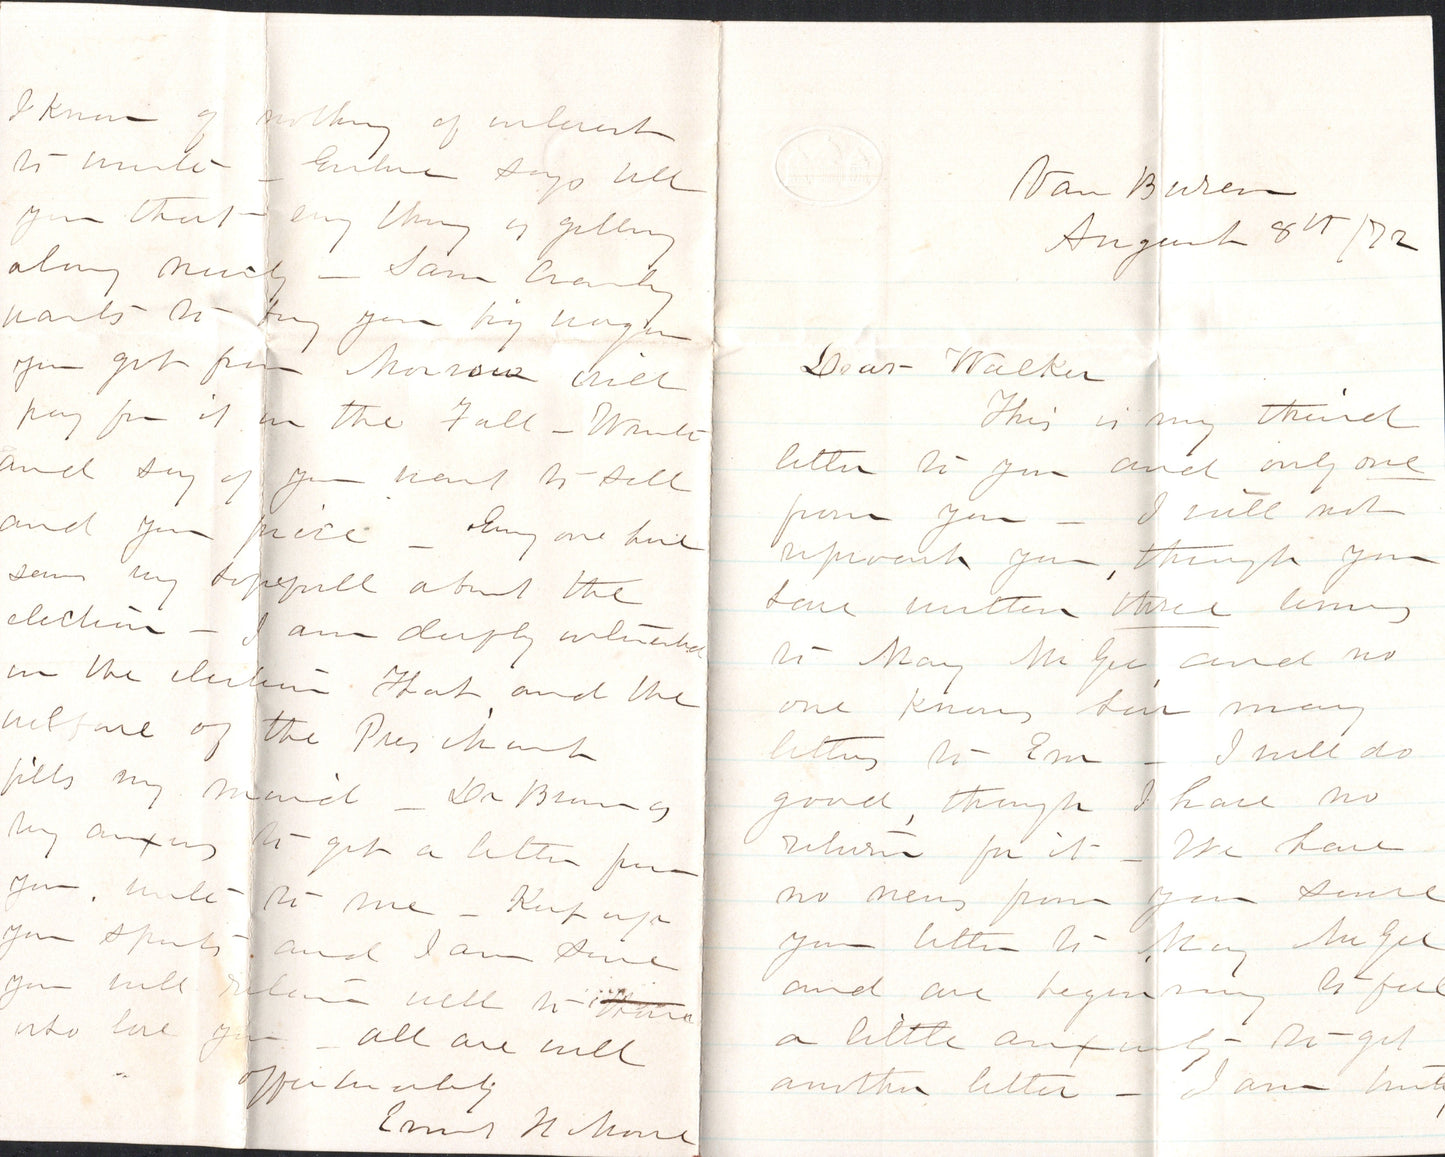 Van Buren
August 8th /72
Dear Walker
This is my third
letter to you and only one
from you – I will not
reproach you, though you
have written three times
to May McGee and no
one knows how many
letters to Em – I will do
good, though I have no
return for it – We have
no news from you since
your letter to May McGee
and are beginning to feel
a little anxiety to get
another letter – I am
I know of nothing of interest
to write – says tell
you that every thing is getting
along nicely – Sam
wants to buy your big wagon
you got from Morrow will
pay for it in the Fall – Write
and say if you want to sell
and your price – Every one here
seems very hopefull about the
election – I am deeply interested
in the election That, and the
welfare of the President
fills my mind – Dr Brown is
very anxious to get a letter from
you, write to me – Keep up
your spirits and I am sure
you will return well to those
who love you – all are well
affectionately
H